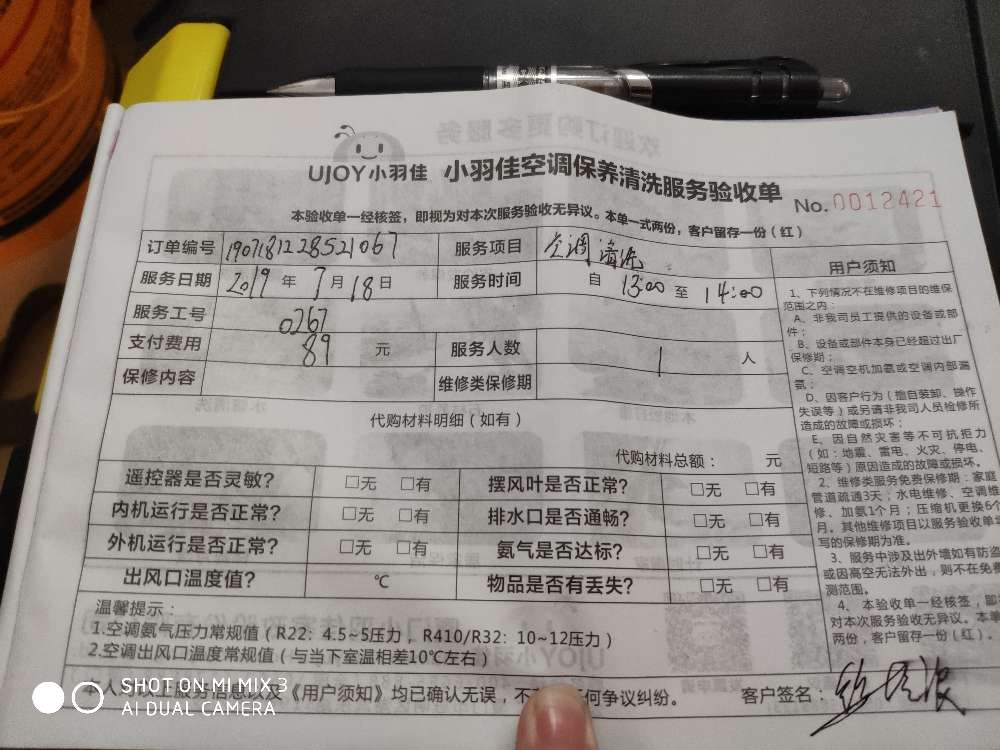 UJOY小羽佳 小羽佳空调保养清洗服务验收单 No.0012421
本验收单一经核签，即视为对本次服务验收无异议。本单一式两份，客户留存一份（红）
订单编号 1907181228521067 服务项目 空调清洗
服务日期 2019 年 7 月 18 日 服务时间 自 13:00 至 14:00
服务工号 0267
支付费用 89 元 服务人数 1 人
保修内容 维修类保修期
代购材料明细（如有）
代购材料总额： 元
遥控器是否灵敏？ □无 □有 摆风叶是否正常？ □无 □有
内机运行是否正常？ □无 □有 排水口是否通畅？ □无 □有
外机运行是否正常？ □无 □有 氨气是否达标？ □无 □有
出风口温度值？ ℃ 物品是否有丢失？ □无 □有
温馨提示：
1.空调氨气压力常规值（R22：4.5~5压力，R410/R32：10~12压力）
2.空调出风口温度常规值（与当下室温相差10℃左右）
本人对以上服务信息以及《用户须知》均已确认无误，不 何争议纠纷。 客户签名：
用户须知
1、下列情况不在维修项目的维保
范围之内：
A、非我司员工提供的设备或部
件；
B、设备或部件本身已经超过出厂
保修期；
C、空调空机加氨或空调内部漏
氨；
D、因客户行为（擅自装卸、操作
失误等）或另请非我司人员检修所
造成的故障或损坏；
E、因自然灾害等不可抗拒力
（如：地震、雷电、火灾、停电、
短路等）原因造成的故障或损坏。
2、维修类服务免费保修期：家庭
管道疏通3天；水电维修、空调维
修、加氨1个月；压缩机更换6个
月。其他维修项目以服务验收单
写的保修期为准。
3、服务中涉及出外墙如有防盗
或因高空无法外出，则不在免费
测范围。
4、本验收单一经核签，即
对本次服务验收无异议。本单
两份，客户留存一份（红）。
SHOT ON MI MIX 3
AI DUAL CAMERA